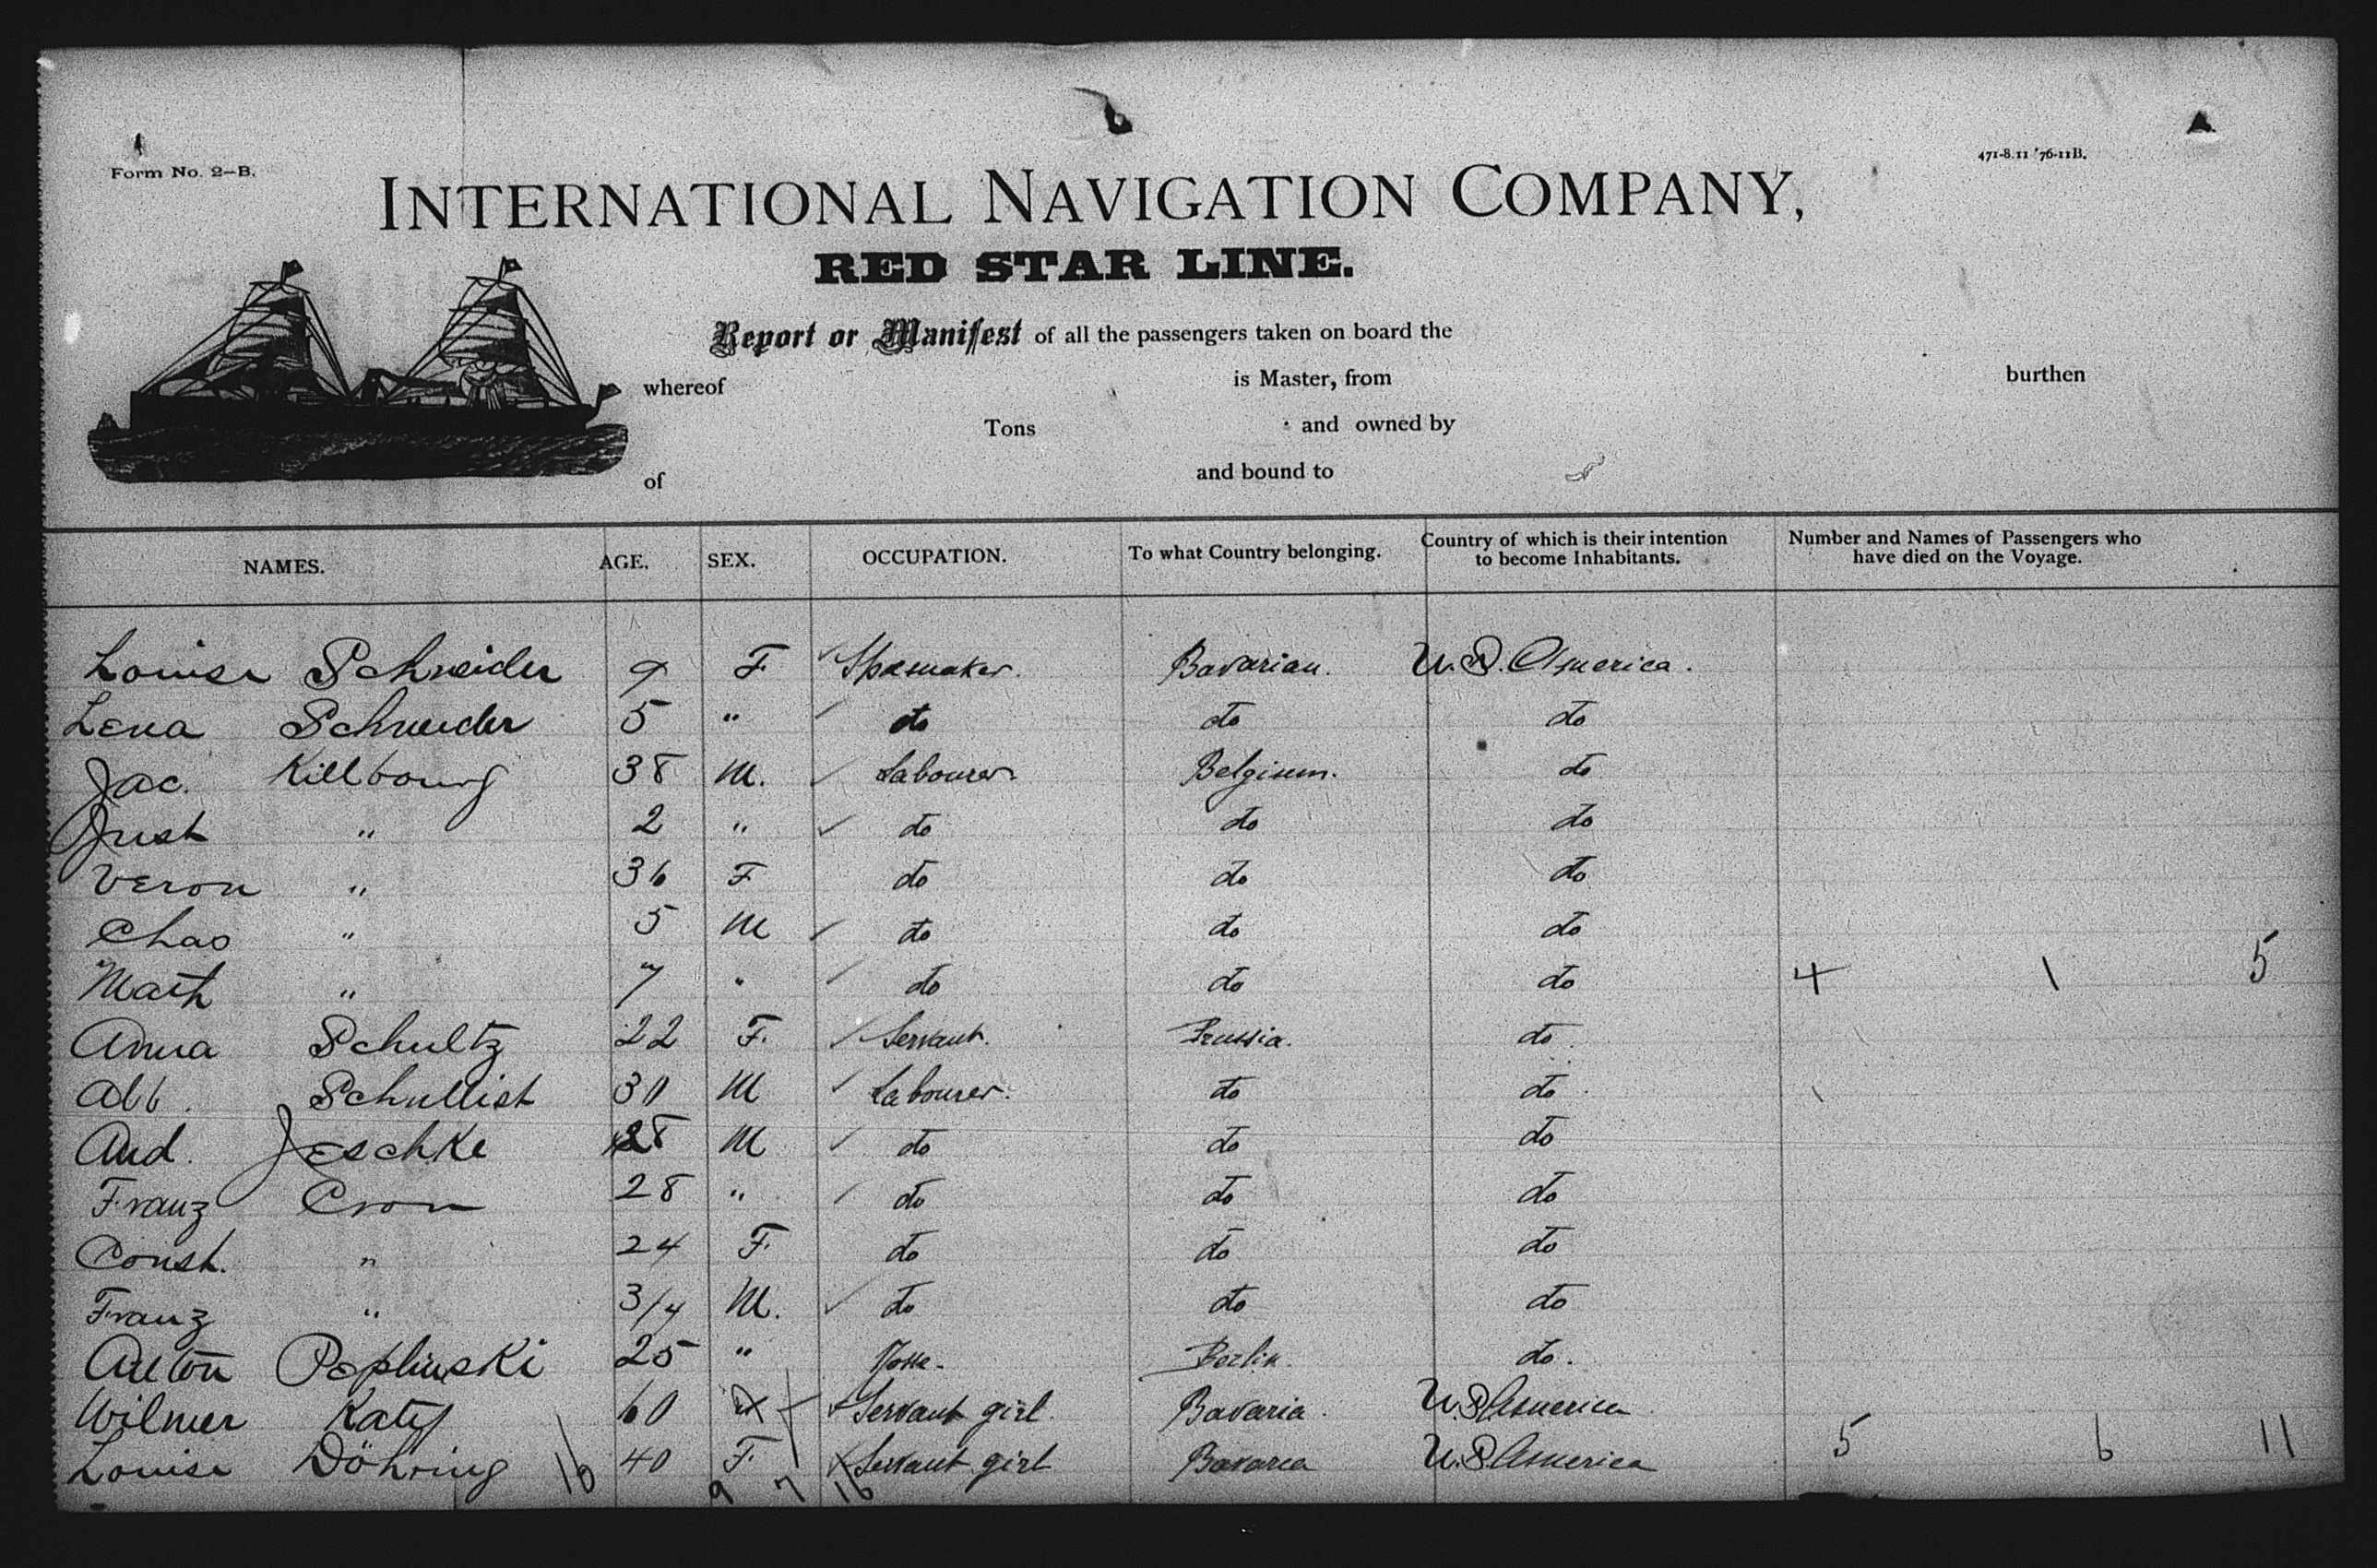 Form No. 2–B.
471-8.11 '76-11B.
INTERNATIONAL NAVIGATION COMPANY,
RED STAR LINE.
Report or Manifest of all the passengers taken on board the
whereof is Master, from burthen
Tons and owned by
of and bound to
NAMES. AGE. SEX. OCCUPATION. To what Country belonging. Country of which is their intention to become Inhabitants. Number and Names of Passengers who have died on the Voyage.
Louise Schneider 9 F Shoemaker. Bavarian. U.S. America.
Lena Schneider 5 " do do do
Jac. Killbourg 38 M. Labourer. Belgium. do
Just " 2 " do do do
Veron " 36 F do do do
Chas " 5 M do do do
Math " 7 " do do do 4 1 5
Anna Schultz 22 F. Servant. Prussia. do
Alb. Schullist 30 M Labourer. do do
And. Jeschke 28 M do do do
Franz Cron 28 " do do do
Const. " 24 F. do do do
Franz " 3/4 M. do do do
Anton Peplinski 25 " Berlin. do.
Wilmer Katy 60 Servant girl. Bavaria. U.S. America
Louise Döhring 16 40 F. Servant girl Bavaria U.S. America 5 6 11
9 7 16